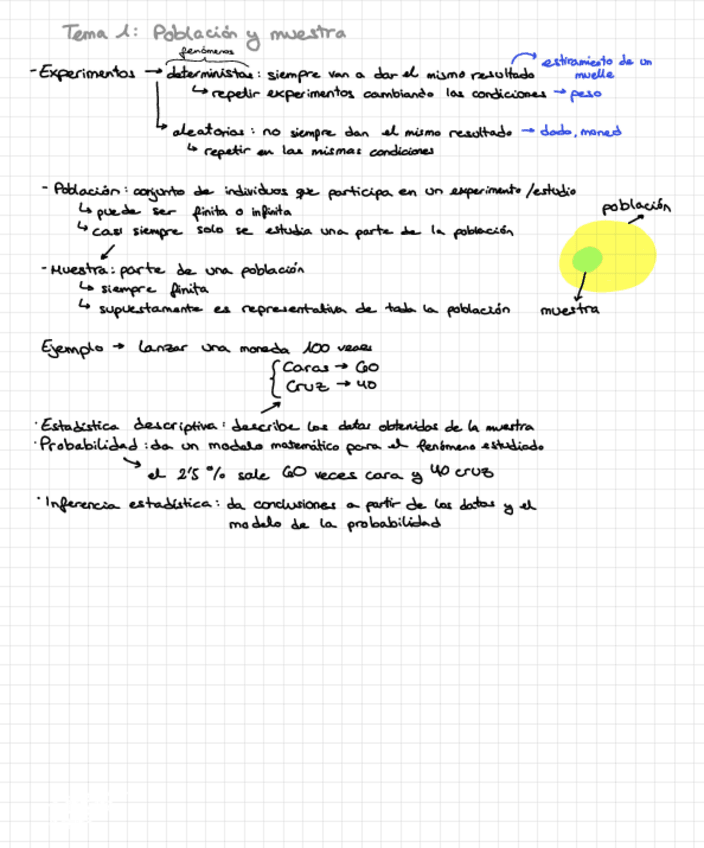 Tema 1: Población y muestra
fenómenos
- Experimentos → deterministas: siempre van a dar el mismo resultado → estiramiento de un muelle
↳ repetir experimentos cambiando las condiciones → peso
↳ aleatorios: no siempre dan el mismo resultado → dado, moned
↳ repetir en las mismas condiciones
- Población: conjunto de individuos que participa en un experimento/estudio
↳ puede ser finita o infinita
↳ casi siempre solo se estudia una parte de la población
población
- Muestra: parte de una población
↳ siempre finita
↳ supuestamente es representativa de toda la población
muestra
Ejemplo → lanzar una moneda 100 veces
{ Caras → 60
Cruz → 40
· Estadística descriptiva: describe los datos obtenidos de la muestra
· Probabilidad: da un modelo matemático para el fenómeno estudiado
↳ el 2'5 % sale 60 veces cara y 40 cruz
· Inferencia estadística: da conclusiones a partir de los datos y el
modelo de la probabilidad